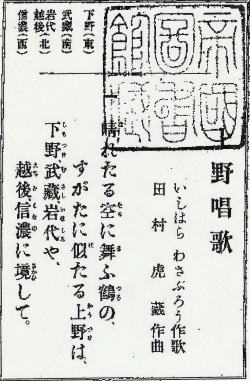 帝國
圖書
館藏
上野唱歌
いしはら わさぶろう作歌
田村虎藏作曲
一 晴れたる空に舞ふ鶴の、
すがたに似たる上野は、
下野武藏岩代や、
越後信濃に境して。
下野(東)
武藏(南)
岩代
越後(北)
信濃(西)